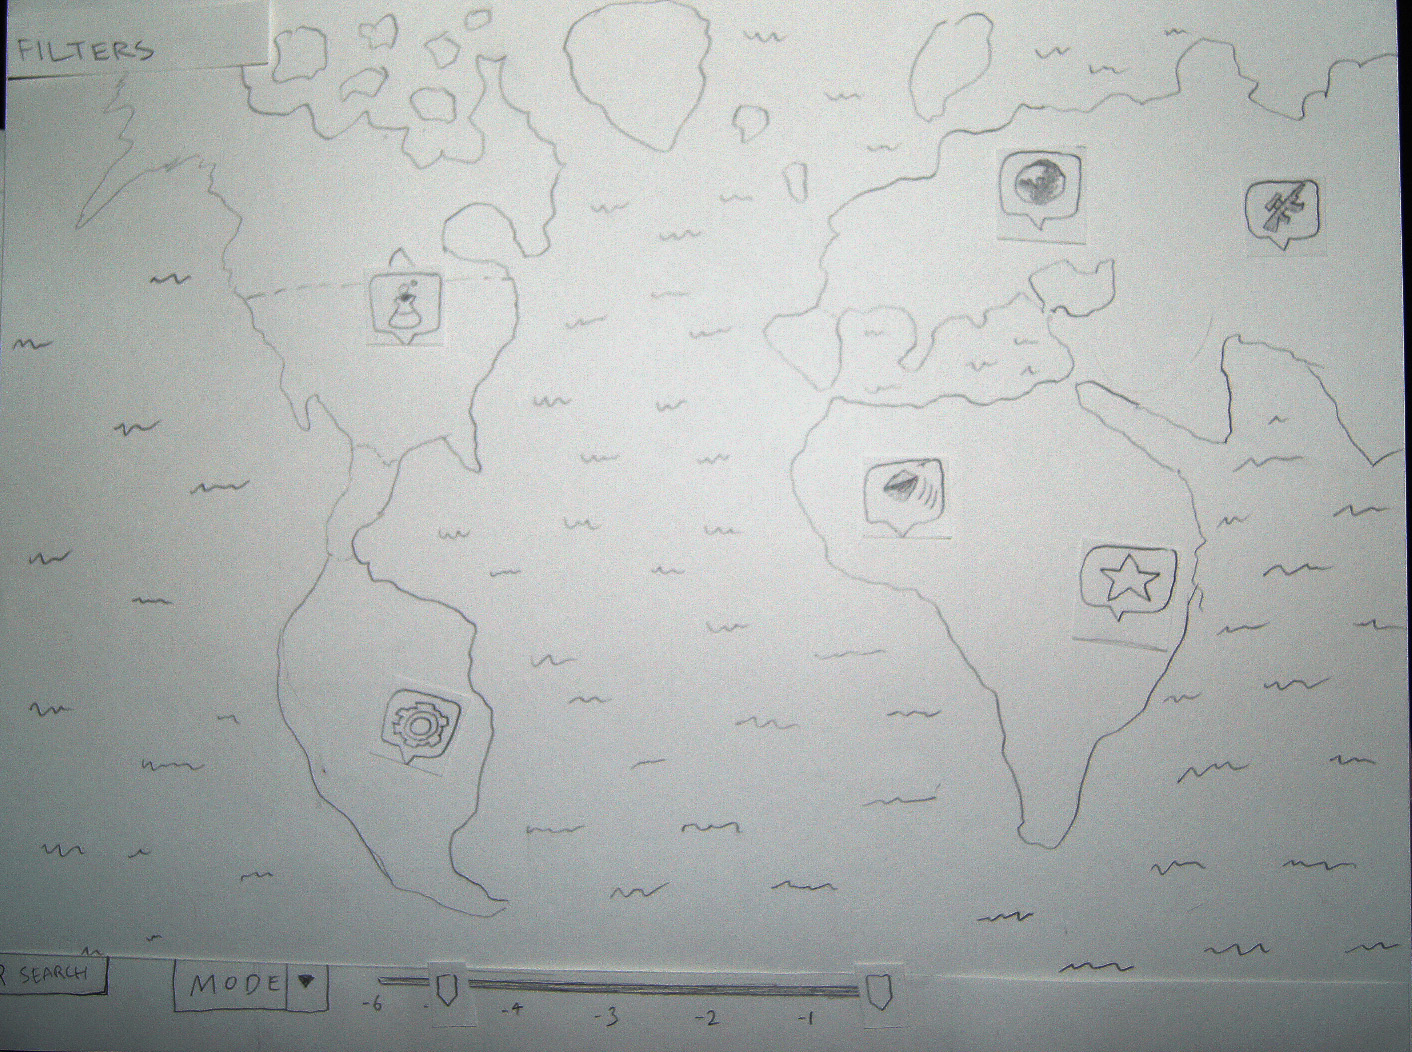 FILTERS
SEARCH
MODE
-6 -4 -3 -2 -1